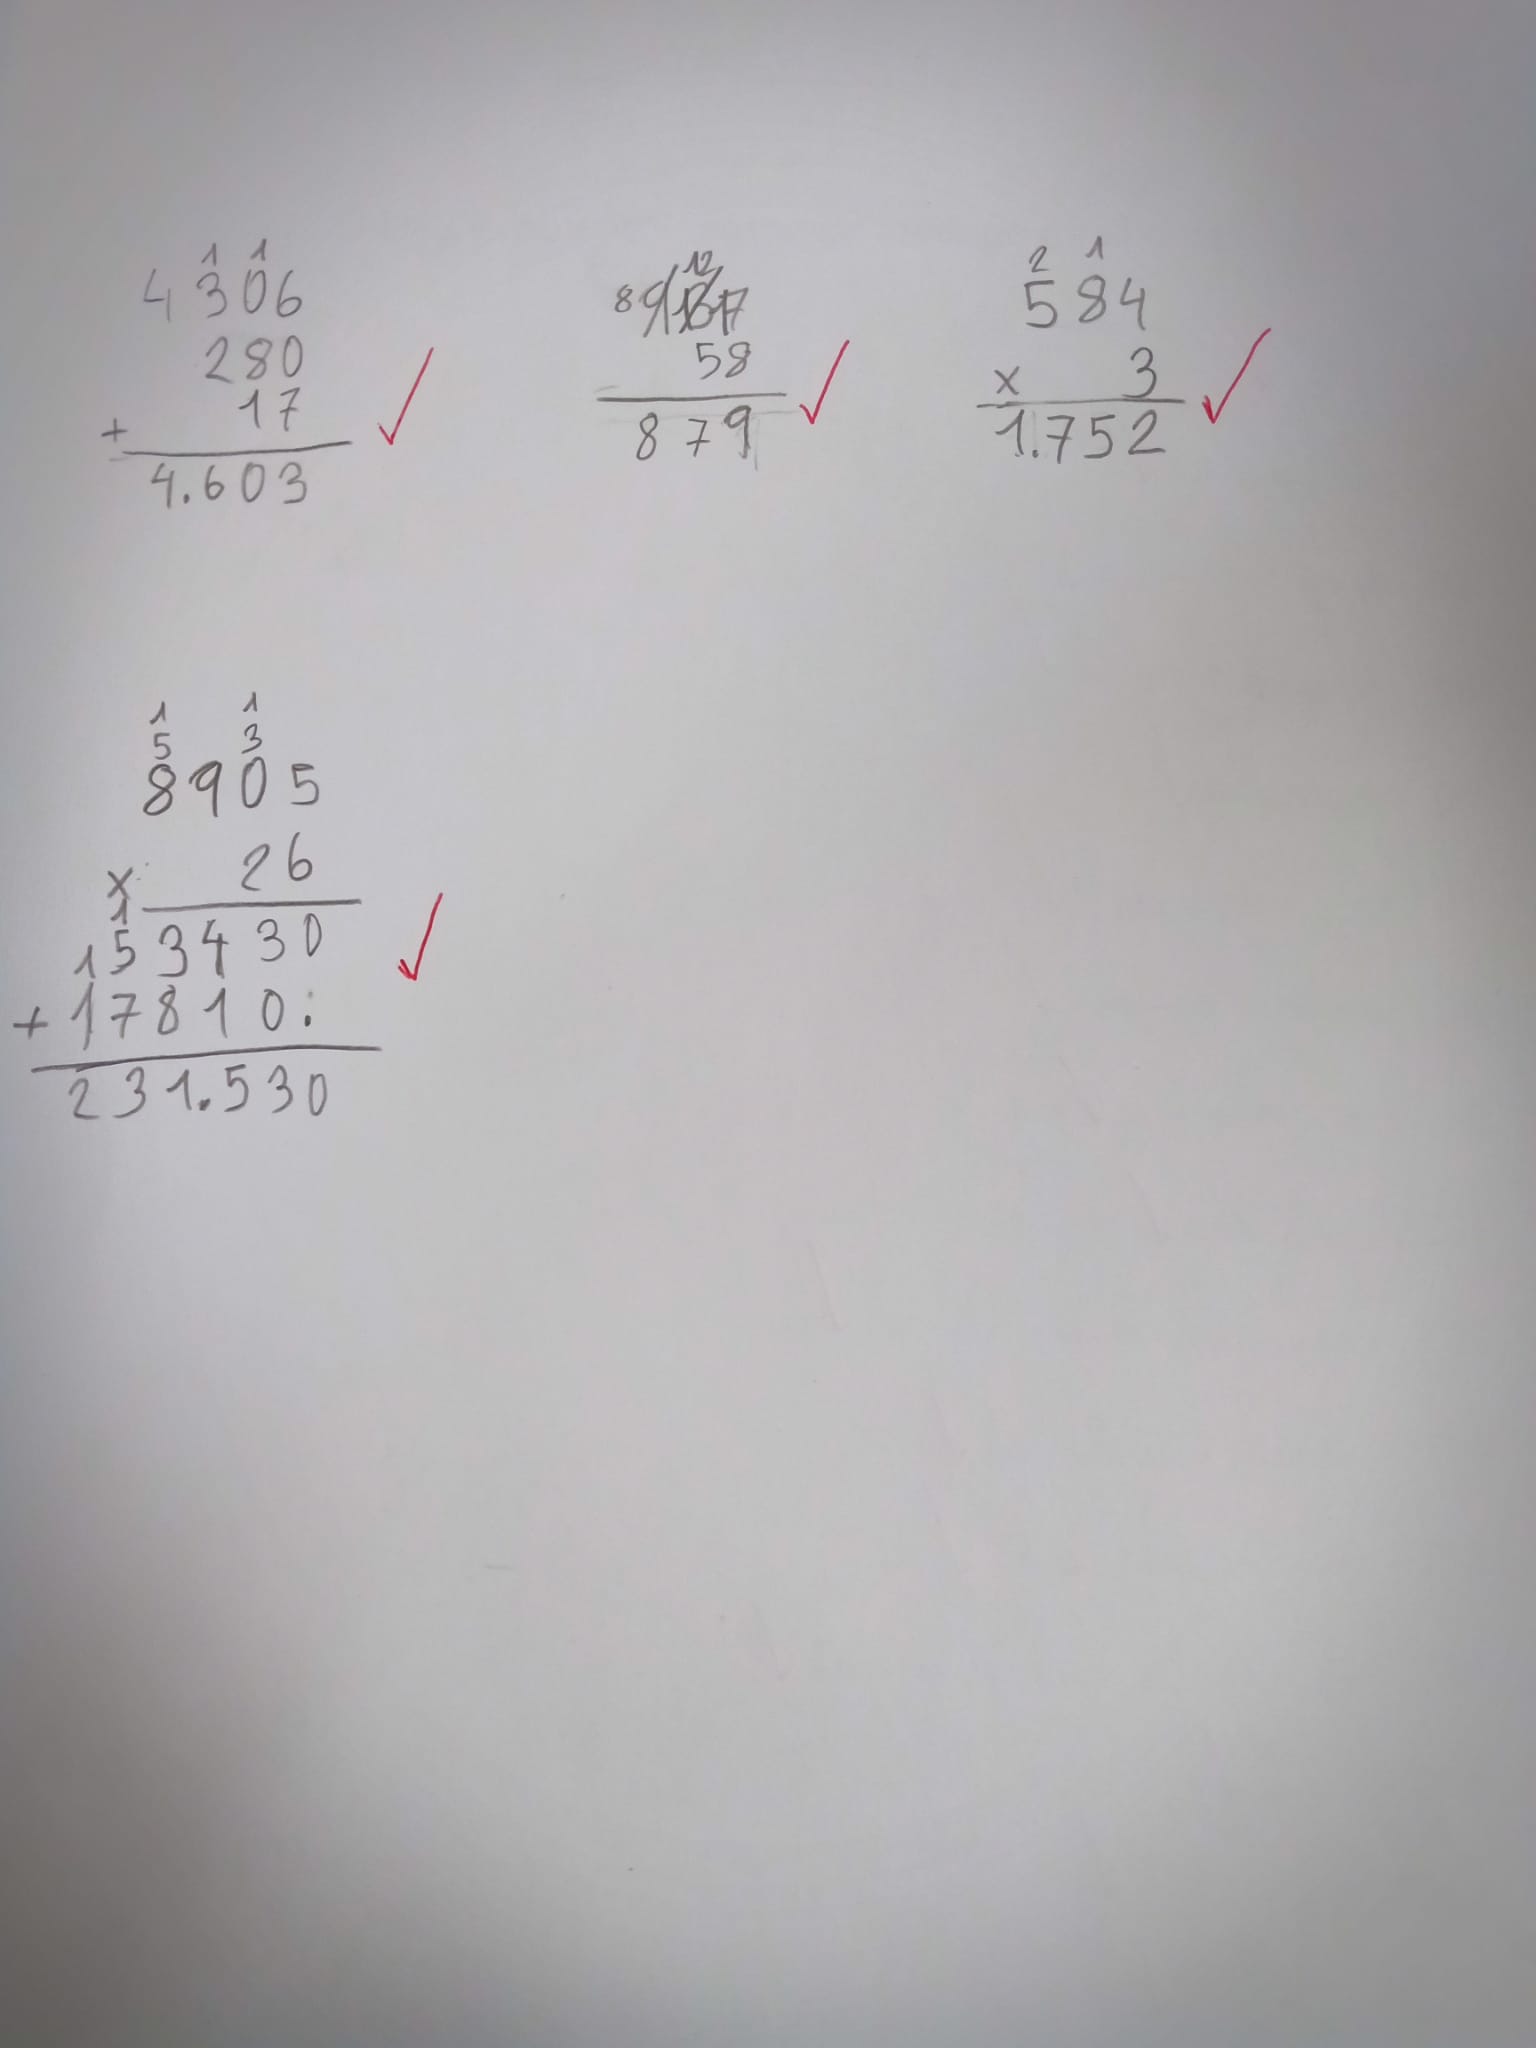 1 1
4306
280
17
+
4.603
12
8 9 13 17
58
879
2 1
584
x 3
1.752
1 1
5 3
8905
x 26
1
153430
+ 17810:
231.530